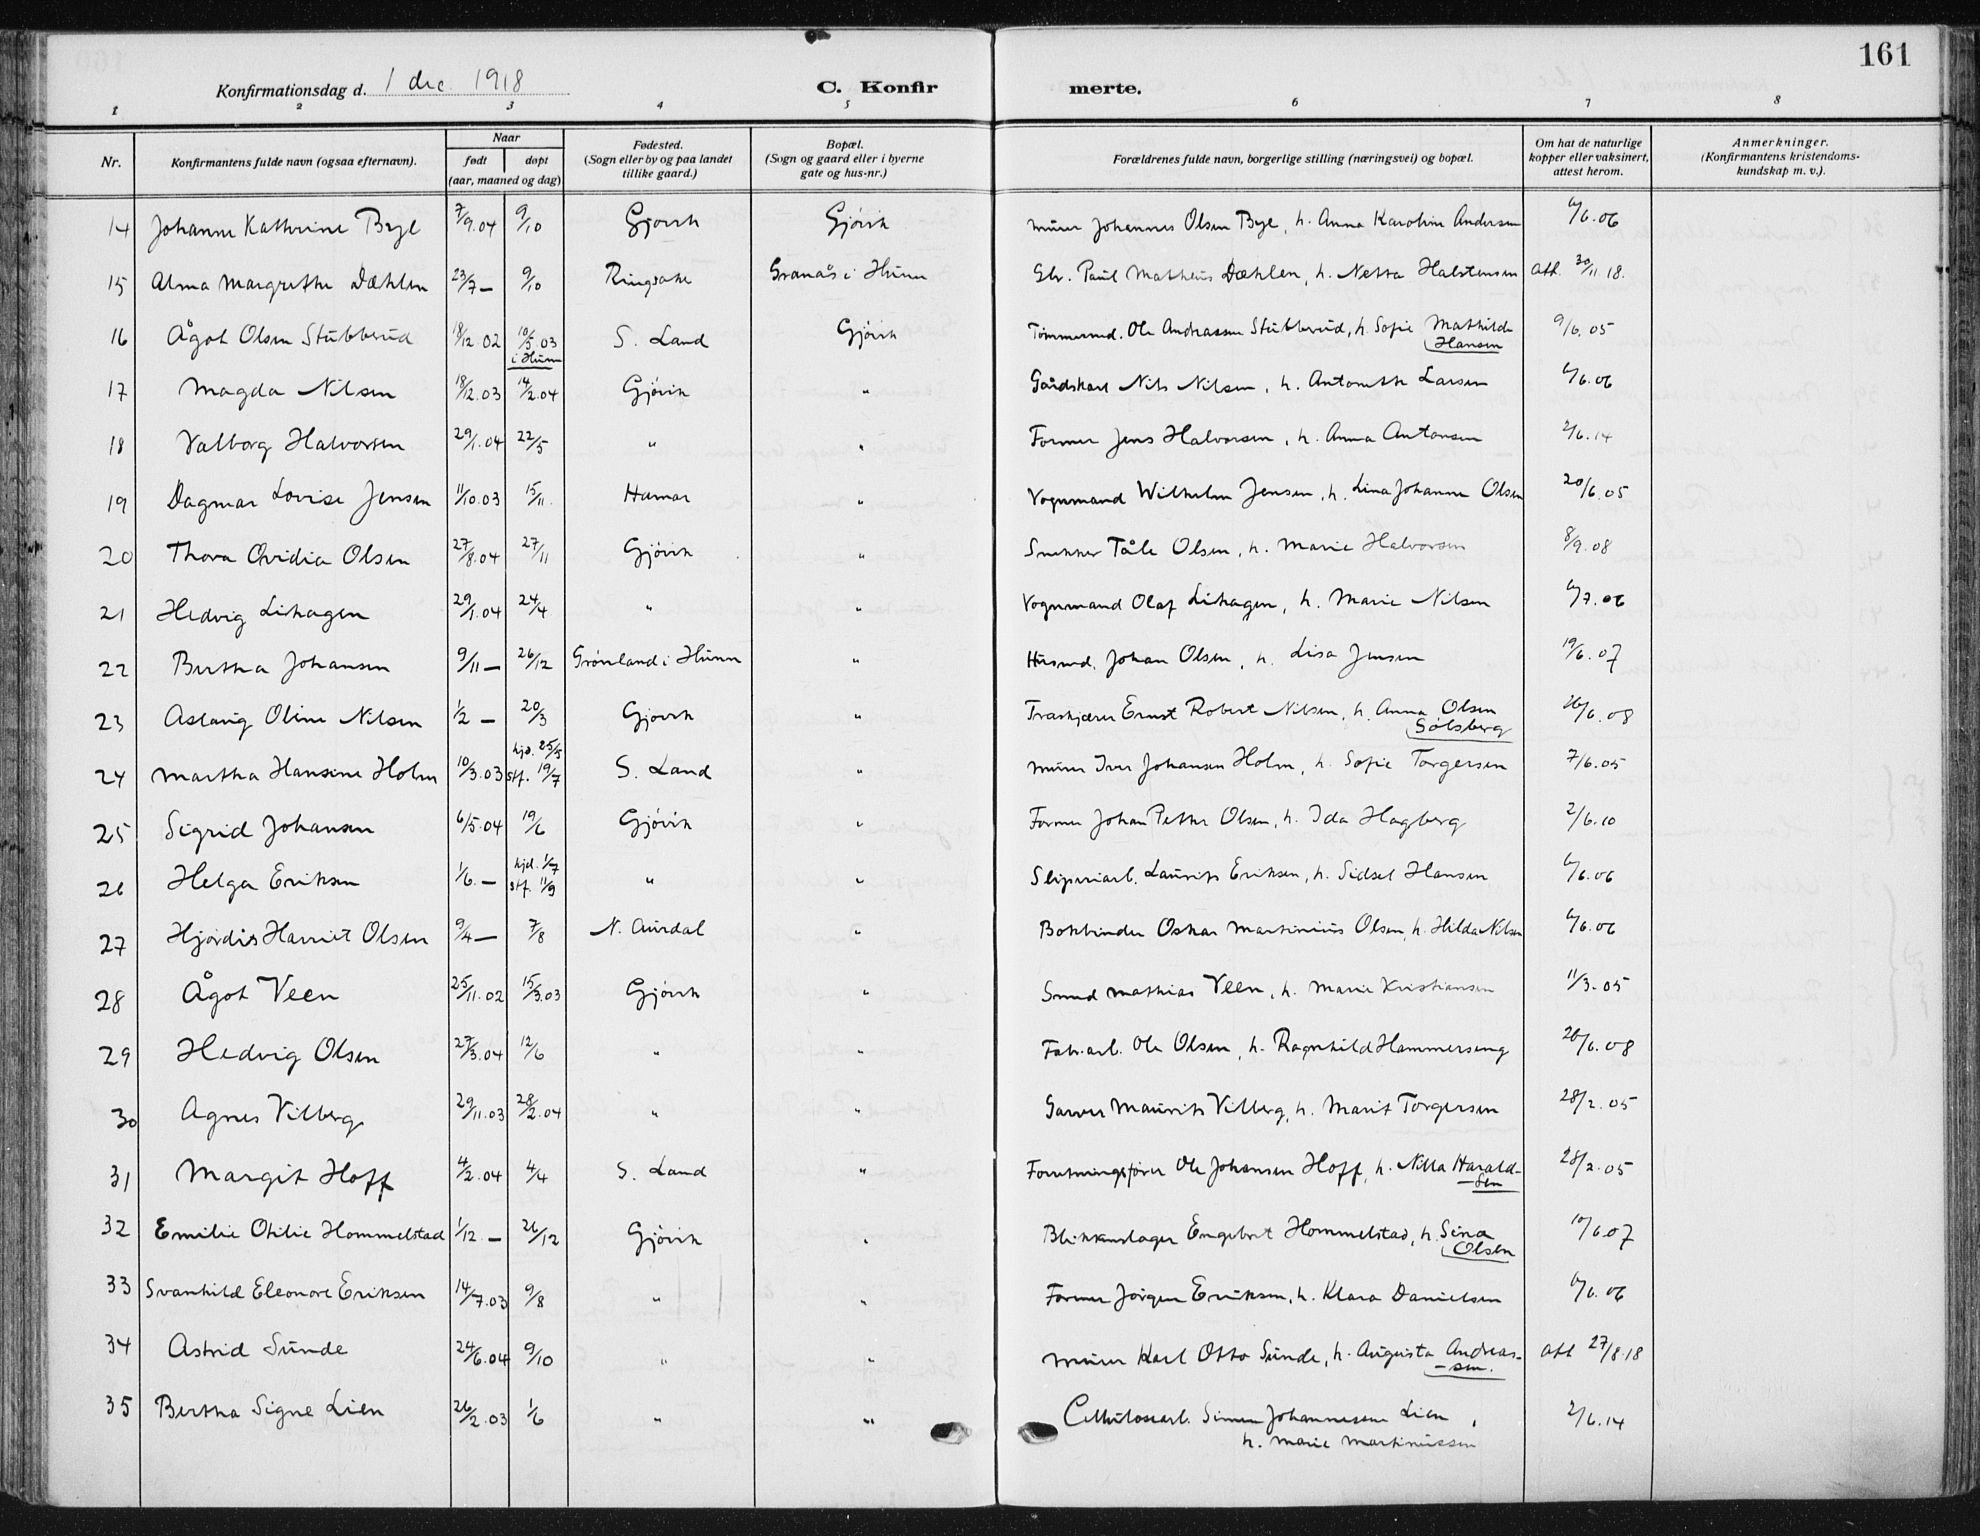 161
Konfirmationsdag d. 1 dec 1918
C. Konfirmerte.
1 2 3 4 5 6 7 8
Nr. | Konfirmantens fulde navn (ogsaa efternavn). | Naar født | døpt (aar, maaned og dag) | Fødested. (Sogn eller by og paa landet tillike gaard.) | Bopæl. (Sogn og gaard eller i byerne gate og hus-nr.) | Forældrenes fulde navn, borgerlige stilling (næringsvei) og bopæl. | Om hat de naturlige kopper eller vaksinert, attest herom. | Anmerkninger. (Konfirmantens kristendoms-kundskap m. v.).
14 Johanne Kathrine Bye 7/9.04 9/10 Gjövik Gjövik Murer Johannes Olsen Bye, h. Anna Karoline Andersen 6/6.06
15 Alma Margrethe Dæhlen 23/7 – 9/10 Ringsaker Granås i Hunn Paul Matheus Dæhlen, h. Netta Halstensen att. 30/11.18.
16 Ågot Olsen Stubberud 18/12.02 10/5.03 i Hunn S. Land Gjövik Tömmermd. Ole Andreassen Stubberud, h. Sofie Mathilde Hansen 9/6.05
17 Magda Nilsen 18/12.03 14/2.04 Gjövik " Gårdskarl Nils Nilsen, h. Antonette Larsen 6/6.06
18 Valborg Halvorsen 29/1.04 22/5 " " Former Jens Halvorsen, h. Anna Antonsen 2/6.14
19 Dagmar Lovise Jensen 11/10.03 15/11. Hamar " Vognmand Wilhelm Jensen, h. Lina Johanne Olsen 20/6.05
20 Thora Ovidia Olsen 27/8.04 27/11 Gjövik " Snekker Tåle Olsen, h. Marie Halvorsen 8/9.08
21 Hedvig Lihagen 29/1.04 24/4 " " Vognmand Olaf Lihagen, h. Marie Nilsen 6/7.06
22 Bertha Johansen 9/11 – 26/12 Grönland i Hunn " Husmd. Johan Olsen, h. Lisa Jensen 19/6.07
23 Aslaug Oline Nilsen 1/2 – 20/3 Gjövik " Træskjærer Ernst Robert Nilsen, h. Anna Olsen Sölsberg 26/6.08
24 Martha Hansine Holm 10/3.03 hjd. 25/5 stf. 19/7 S. Land " Murer Iver Johansen Holm, h. Sofie Torgersen 7/6.05
25 Sigrid Johansen 6/5.04 19/6 Gjövik " Former Johan Petter Olsen, h. Ida Hagberg 2/6.10
26 Helga Eriksen 1/6. – hjd. 1/7 stf. 11/9 " " Sliperiarb. Laurits Eriksen, h. Sidsel Hansen 6/6.06
27 Hjördis Harriet Olsen 9/4 – 7/8 N. Aurdal " Bokbinder Oskar Martinius Olsen, h. Hilda Nilsen 6/6.06
28 Ågot Veen 25/11.02 15/3.03 Gjövik " Smed Mathias Veen, h. Marie Kristiansen 11/3.05
29 Hedvig Olsen 27/3.04 12/6 " " Fab.arb. Ole Olsen, h. Ragnhild Hammerseng 26/6.08
30 Agnes Vilberg 29/11.03 28/2.04 " " Garver Maurits Vilberg, h. Marit Torgersen 28/2.05
31 Margit Hoff 4/2.04 4/4 S. Land " Forretningsförer Ole Johansen Hoff, h. Nilla Harald-sen 28/2.05
32 Emilie Otilie Hommelstad 1/12 – 26/12 Gjövik " Blikkenslager Engebret Hommelstad, h. Sina Olsen 10/6.07
33 Svanhild Eleonore Eriksen 14/7.03 9/8 " " Former Jörgen Eriksen, h. Klara Danielsen 6/6.06
34 Astrid Sunde 24/6.04 9/10 " " Murer Karl Otto Sunde, h. Augusta Andreas-sen. att 27/8.18
35 Bertha Signe Lien 26/2.03 1/6 " " Cellulosearb. Simen Johannessen Lien,
h. Marie Martinussen 2/6.14